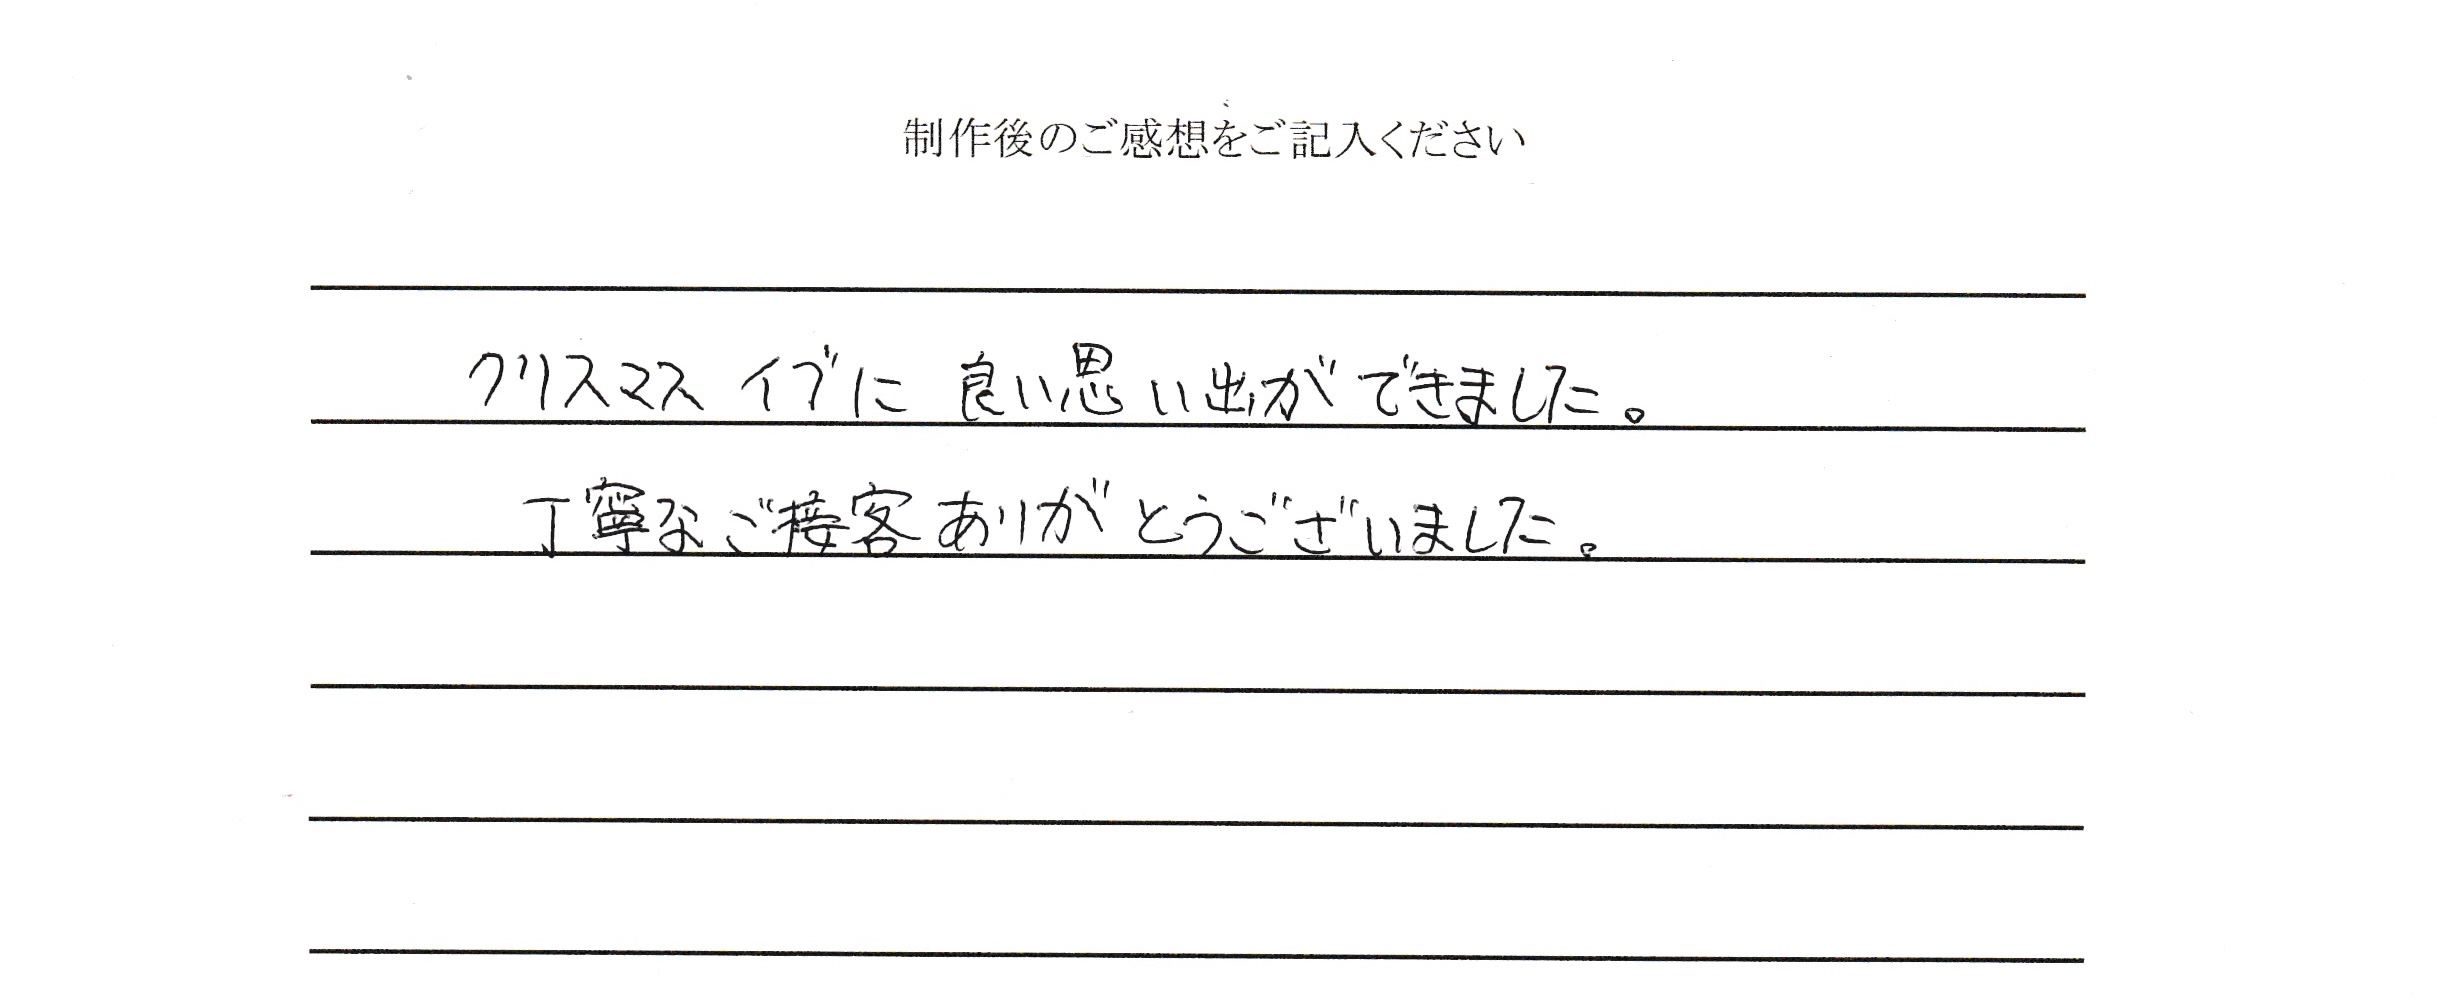 制作後のご感想をご記入ください
クリスマスイブに良い思い出ができました。
丁寧なご接客ありがとうございました。